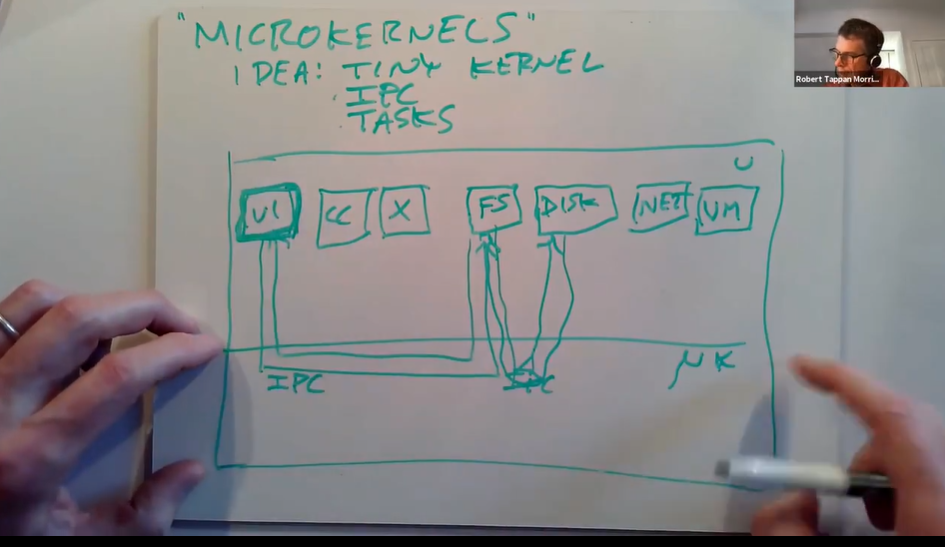 "MICROKERNELS"
IDEA: TINY KERNEL
IPC
TASKS
U
VI CC X FS DISK NET VM
IPC IPC
μK
Robert Tappan Morri...